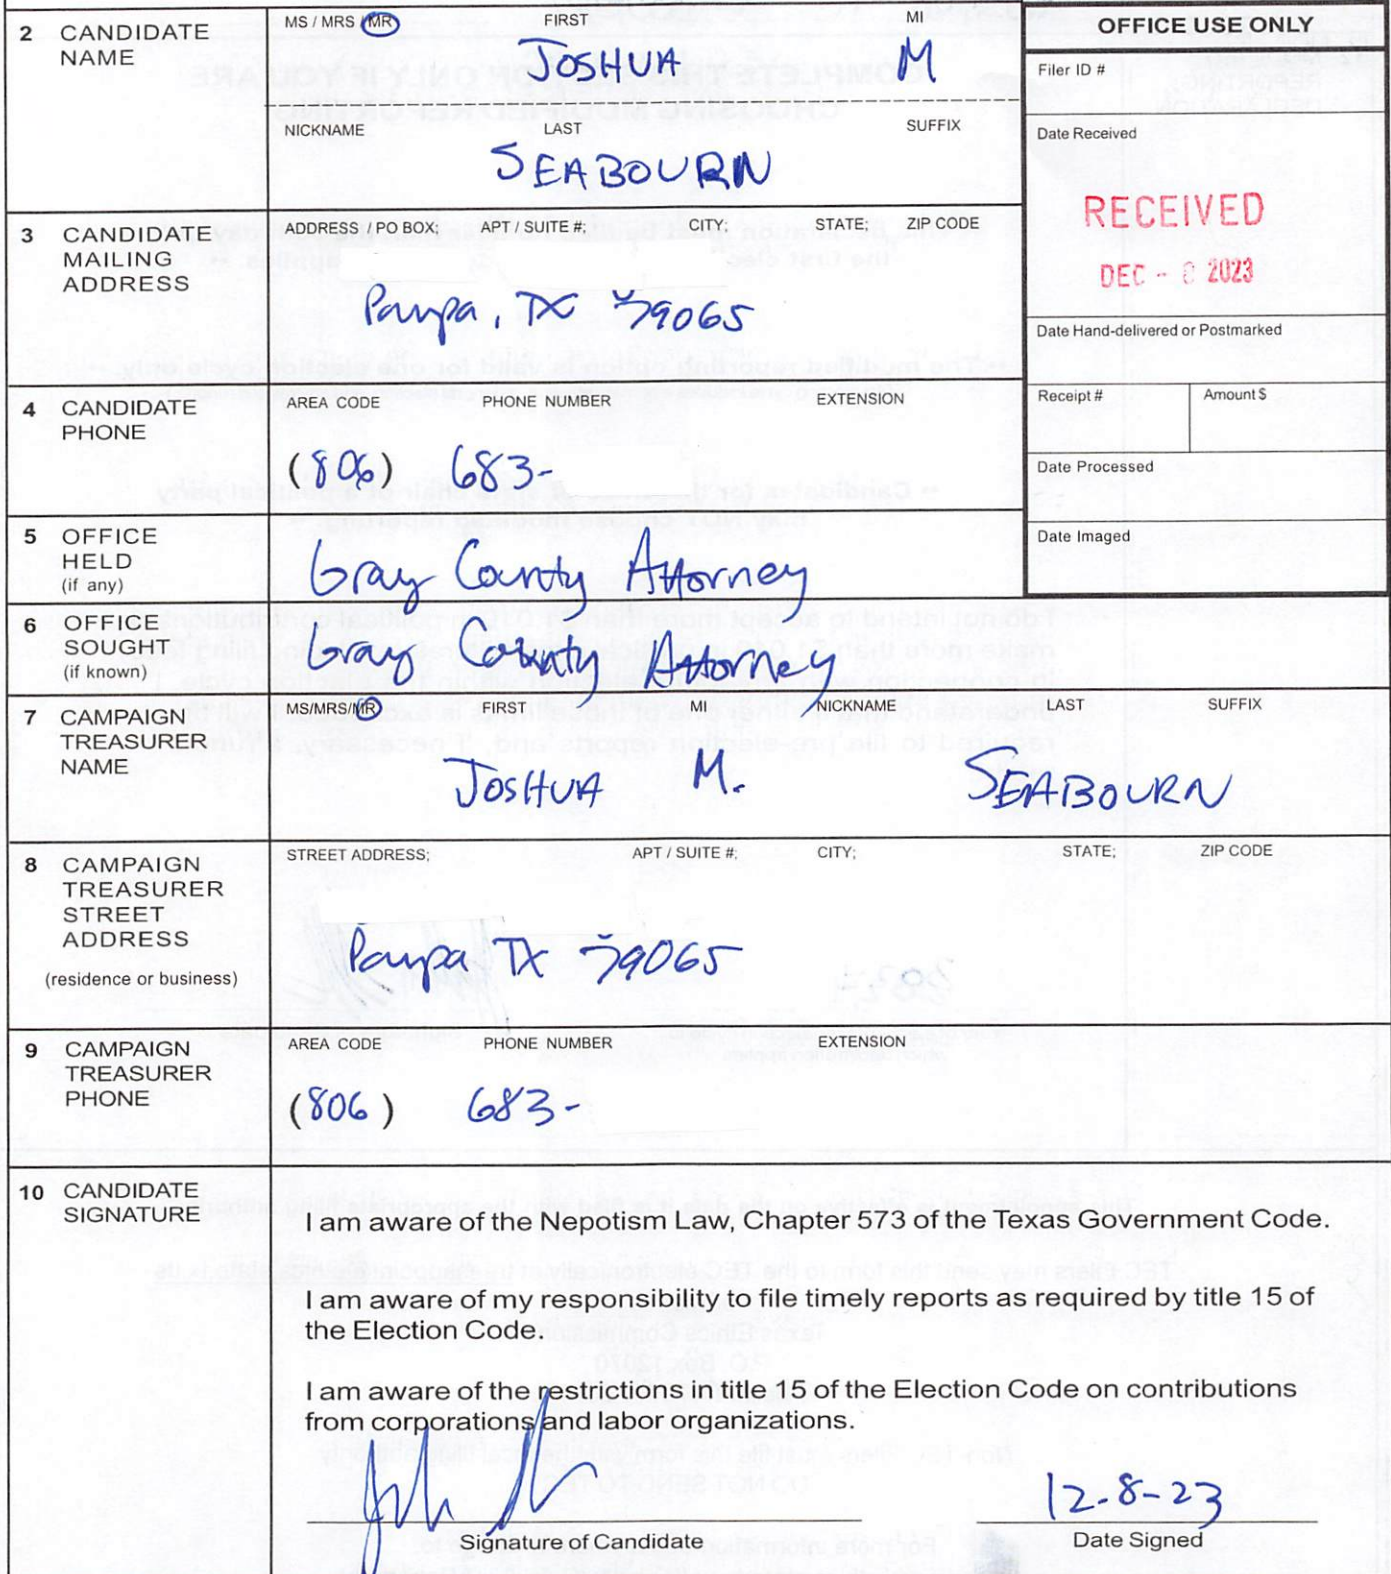 2 CANDIDATE NAME
MS / MRS / MR FIRST MI
JOSHUA M
NICKNAME LAST SUFFIX
SEABOURN
OFFICE USE ONLY
Filer ID #
Date Received
RECEIVED
DEC - 8 2023
Date Hand-delivered or Postmarked
Receipt # Amount $
Date Processed
Date Imaged
3 CANDIDATE MAILING ADDRESS
ADDRESS / PO BOX; APT / SUITE #; CITY; STATE; ZIP CODE
Pampa, TX 79065
4 CANDIDATE PHONE
AREA CODE PHONE NUMBER EXTENSION
(806) 683-
5 OFFICE HELD
(if any)
Gray County Attorney
6 OFFICE SOUGHT
(if known)
Gray County Attorney
7 CAMPAIGN TREASURER NAME
MS/MRS/MR FIRST MI NICKNAME LAST SUFFIX
JOSHUA M. SEABOURN
8 CAMPAIGN TREASURER STREET ADDRESS
(residence or business)
STREET ADDRESS; APT / SUITE #; CITY; STATE; ZIP CODE
Pampa TX 79065
9 CAMPAIGN TREASURER PHONE
AREA CODE PHONE NUMBER EXTENSION
(806) 683-
10 CANDIDATE SIGNATURE
I am aware of the Nepotism Law, Chapter 573 of the Texas Government Code.
I am aware of my responsibility to file timely reports as required by title 15 of
the Election Code.
I am aware of the restrictions in title 15 of the Election Code on contributions
from corporations and labor organizations.
12-8-23
Signature of Candidate Date Signed